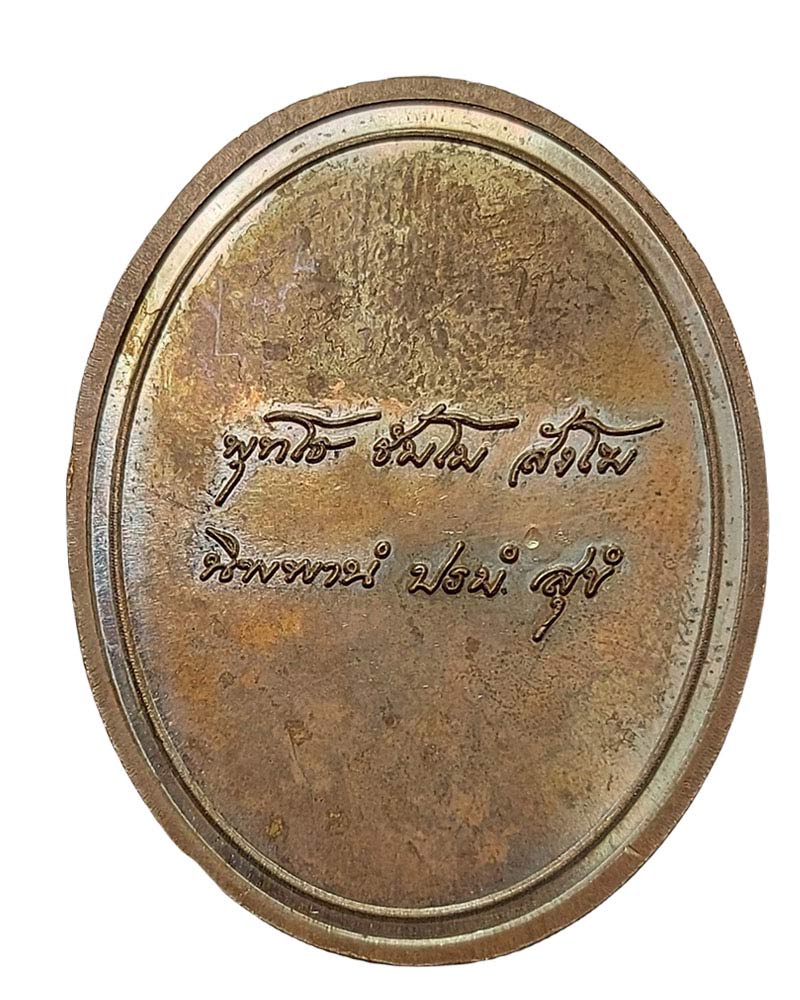 พุทโธ ธัมโม สังโฆ
นิพพานํ ปรมํ สุขํ